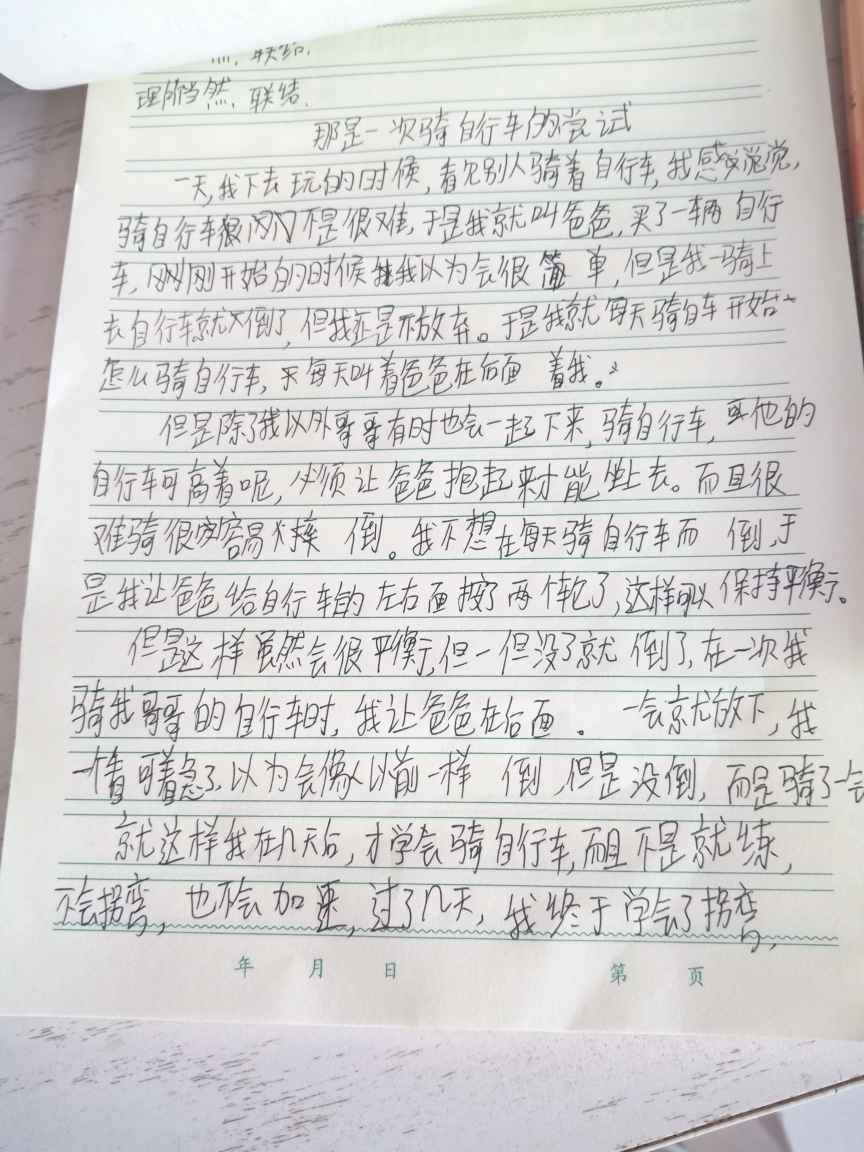 理所当然、联结、
那是一次骑自行车的尝试
一天,我下去玩的时候,看见别人骑着自行车,我感觉
骑自行车不是很难,于是我就叫爸爸,买了一辆自行
车,刚刚开始的时候我以为会很简单,但是我一骑上
去自行车就倒了,但我还是不放弃。于是我就每天骑自车开始
怎么骑自行车,每天叫着爸爸在后面 着我。
但是除了我以外哥哥有时也会一起下来,骑自行车,他的
自行车可高着呢,必须让爸爸抱起来才能坐上去。而且很
难骑很容易摔 倒。我不想在每天骑自行车而 倒,于
是我让爸爸给自行车的左右面按了两个轮子,这样可以保持平衡。
但是这样虽然会很平衡,但一但没了就 倒了,在一次我
骑我哥哥的自行车时,我让爸爸在后面 。 一会就放下,我
一看可着急了,以为会像以前一样 倒,但是没倒,而是骑了一会
就这样我在几天后,才学会骑自行车,而且不是就练,
不会拐弯,也不会加速,过了几天,我终于学会了拐弯,
年 月 日 第 页